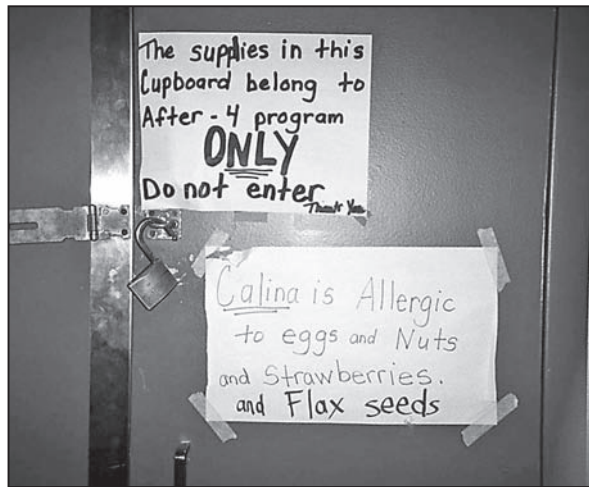 The supplies in this
Cupboard belong to
After-4 program
ONLY
Do not enter
Thank You
Calina is Allergic
to eggs and Nuts
and Strawberries.
and Flax seeds